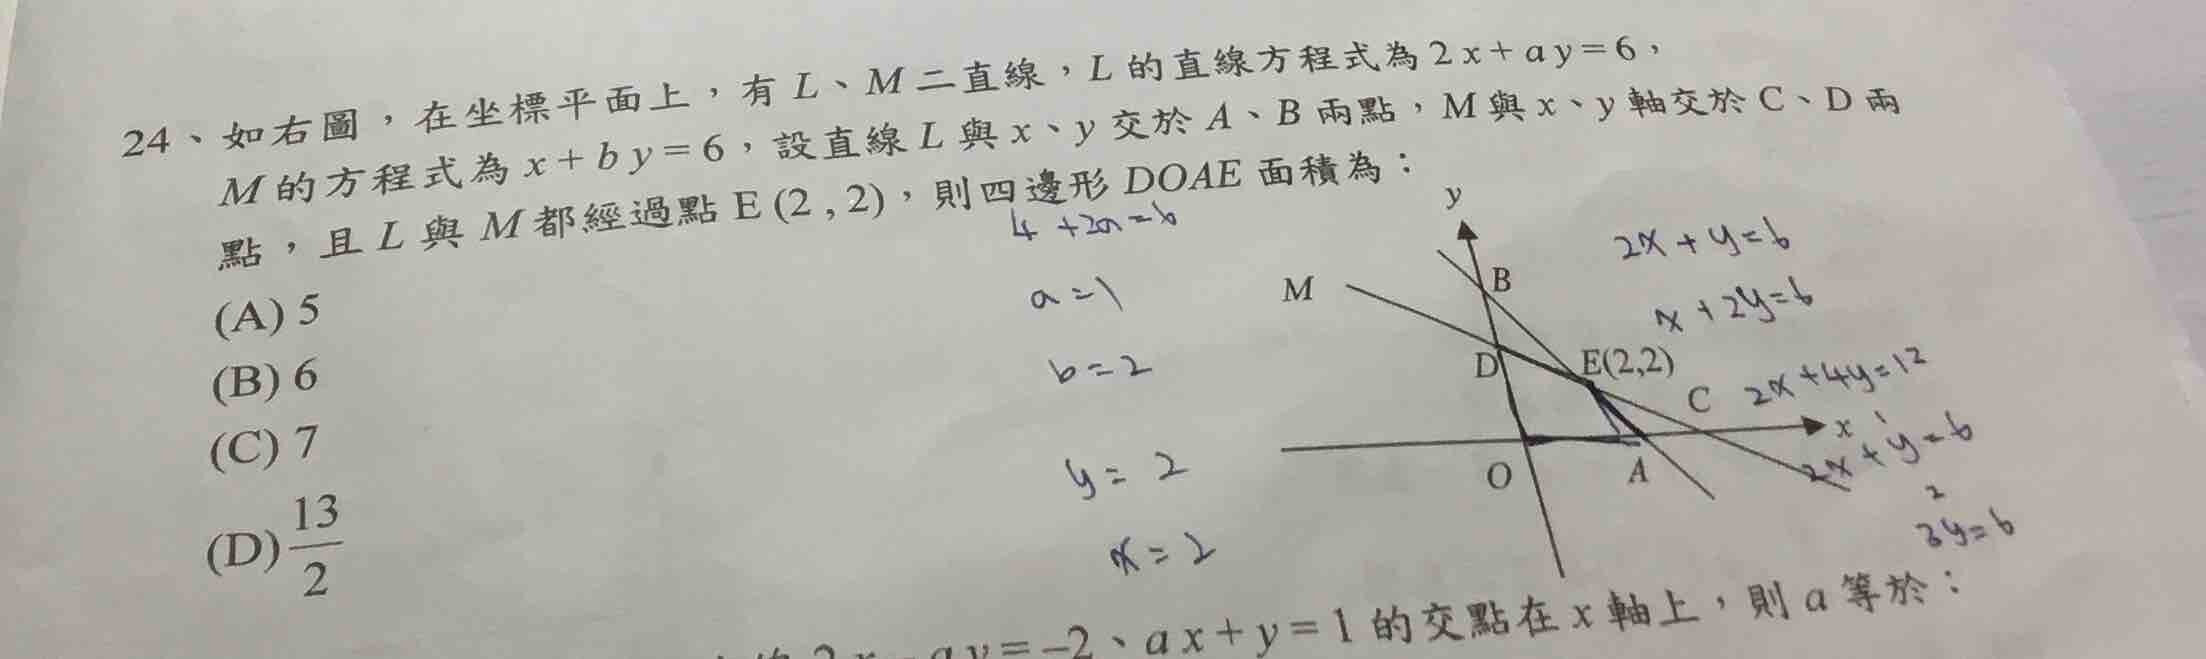 24、如右圖，在坐標平面上，有 L、M 二直線，L 的直線方程式為 2x+ay=6，
M 的方程式為 x+by=6，設直線 L 與 x、y 交於 A、B 兩點，M 與 x、y 軸交於 C、D 兩
點，且 L 與 M 都經過點 E (2,2)，則四邊形 DOAE 面積為：
4+2a=6
(A) 5
a=1
(B) 6
b=2
(C) 7
y=2
(D) 13/2
x=2
y
B
M
D
E(2,2)
C
x
O
A
2x+y=6
x+2y=6
2x+4y=12
2x+y=6
2
3y=6
=-2、ax+y=1 的交點在 x 軸上，則 a 等於：